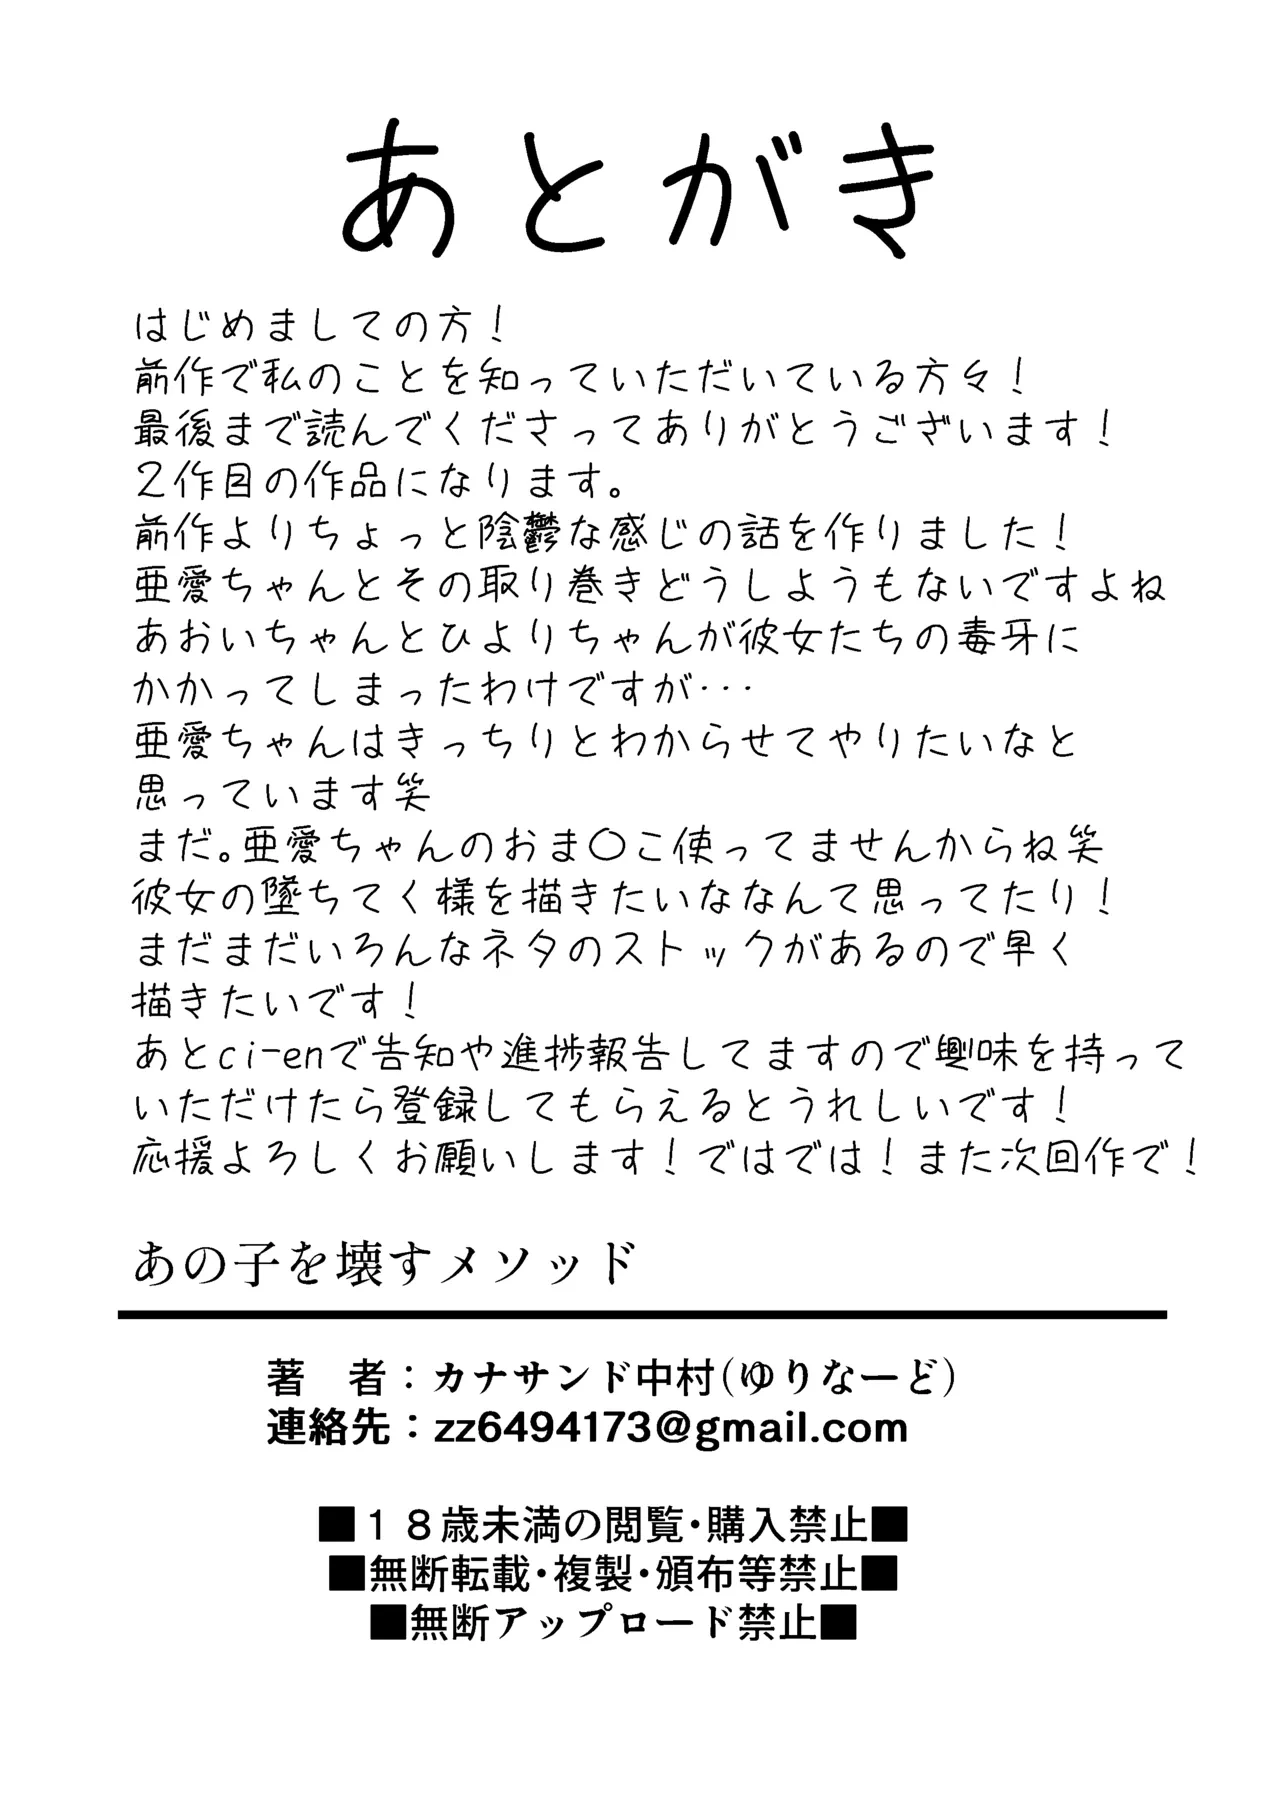 あとがき
はじめましての方！
前作で私のことを知っていただいている方々！
最後まで読んでくださってありがとうございます！
２作目の作品になります。
前作よりちょっと陰鬱な感じの話を作りました！
亜愛ちゃんとその取り巻きどうしようもないですよね
あおいちゃんとひよりちゃんが彼女たちの毒牙に
かかってしまったわけですが･･･
亜愛ちゃんはきっちりとわからせてやりたいなと
思っています笑
まだ｡亜愛ちゃんのおま〇こ使ってませんからね笑
彼女の墜ちてく様を描きたいななんて思ってたり！
まだまだいろんなネタのストックがあるので早く
描きたいです！
あとci-enで告知や進捗報告してますので興味を持って
いただけたら登録してもらえるとうれしいです！
応援よろしくお願いします！ではでは！また次回作で！
あの子を壊すメソッド
著　者：カナサンド中村(ゆりなーど)
連絡先：zz6494173@gmail.com
■１８歳未満の閲覧･購入禁止■
■無断転載･複製･頒布等禁止■
■無断アップロード禁止■